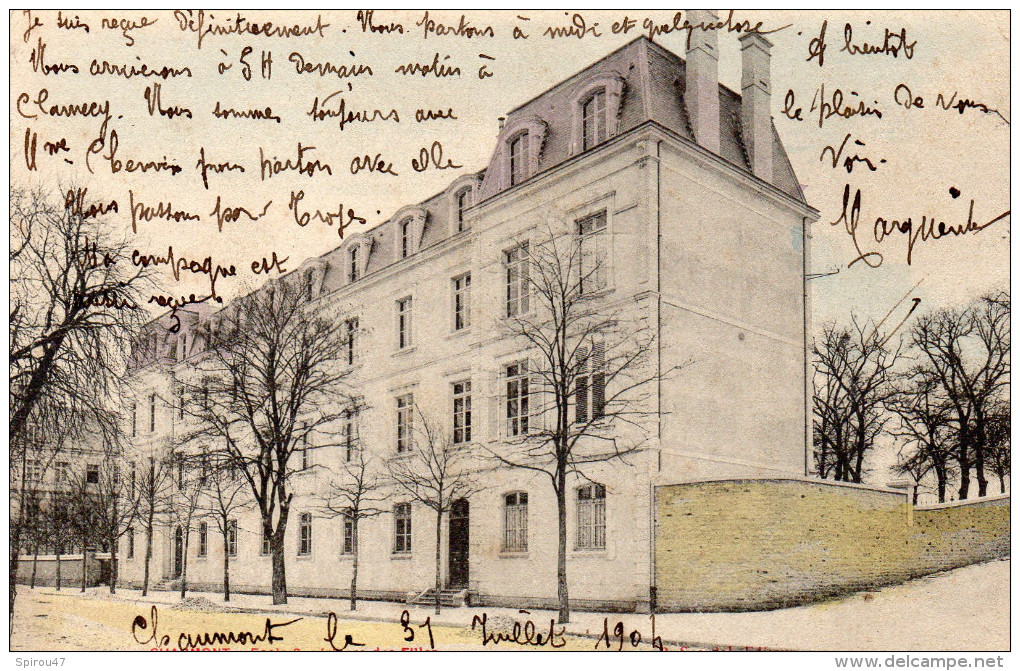 Je suis reçue Définitivement. Nous partons à midi et quelquechose
Nous arriverons à 5H Demain matin à
Clamecy. Nous sommes toujours avec
Mme
nous parton avec elle
Nous passons par Troyes.
Ma compagne est
aussi reçue.
A bientôt
le plaisir de vous
voir.
Marguerite
Chaumont le 31 Juillet 1904
CHAUMONT
des Filles
www.delcampe.net
Spirou47